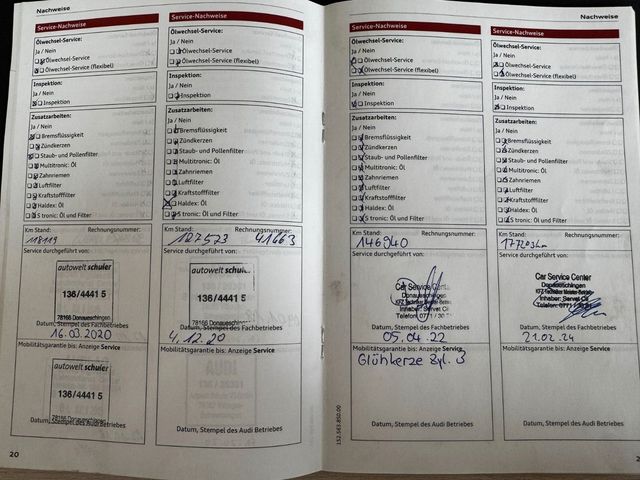 Nachweise
Service-Nachweise
Ölwechsel-Service:
Ja / Nein
Ölwechsel-Service
Ölwechsel-Service (flexibel)
Inspektion:
Ja / Nein
Inspektion
Zusatzarbeiten:
Ja / Nein
Bremsflüssigkeit
Zündkerzen
Staub- und Pollenfilter
Multitronic: Öl
Zahnriemen
Luftfilter
Kraftstofffilter
Haldex: Öl
S tronic: Öl und Filter
Km Stand: Rechnungsnummer:
118119
Service durchgeführt von:
autowelt schuler
136/4441 5
78166 Donaueschingen
Datum, Stempel des Fachbetriebes
16.03.2020
Mobilitätsgarantie bis: Anzeige Service
autowelt schuler
136/4441 5
78166 Donaueschingen
Datum, Stempel des Audi Betriebes
20
Service-Nachweise
Ölwechsel-Service:
Ja / Nein
Ölwechsel-Service
Ölwechsel-Service (flexibel)
Inspektion:
Ja / Nein
Inspektion
Zusatzarbeiten:
Ja / Nein
Bremsflüssigkeit
Zündkerzen
Staub- und Pollenfilter
Multitronic: Öl
Zahnriemen
Luftfilter
Kraftstofffilter
Haldex: Öl
S tronic: Öl und Filter
Km Stand: Rechnungsnummer:
127573 41663
Service durchgeführt von:
autowelt schuler
136/4441 5
78166 Donaueschingen
Datum, Stempel des Fachbetriebes
4.12.20
Mobilitätsgarantie bis: Anzeige Service
Datum, Stempel des Audi Betriebes
Nachweise
Service-Nachweise
Ölwechsel-Service:
Ja / Nein
Ölwechsel-Service
Ölwechsel-Service (flexibel)
Inspektion:
Ja / Nein
Inspektion
Zusatzarbeiten:
Ja / Nein
Bremsflüssigkeit
Zündkerzen
Staub- und Pollenfilter
Multitronic: Öl
Zahnriemen
Luftfilter
Kraftstofffilter
Haldex: Öl
S tronic: Öl und Filter
Km Stand: Rechnungsnummer:
146940
Service durchgeführt von:
Car Service
Donaueschingen
KFZ
Inhaber: Servet
Telefon: 0771 /
Datum, Stempel des Fachbetriebes
05.04.22
Mobilitätsgarantie bis: Anzeige Service
Glühkerze Zyl. 3
Datum, Stempel des Audi Betriebes
152.563.850.00
Service-Nachweise
Ölwechsel-Service:
Ja / Nein
Ölwechsel-Service
Ölwechsel-Service (flexibel)
Inspektion:
Ja / Nein
Inspektion
Zusatzarbeiten:
Ja / Nein
Bremsflüssigkeit
Zündkerzen
Staub- und Pollenfilter
Multitronic: Öl
Zahnriemen
Luftfilter
Kraftstofffilter
Haldex: Öl
S tronic: Öl und Filter
Km Stand: Rechnungsnummer:
Service durchgeführt von:
Car Service Center
Donaueschingen
KFZ
Inhaber: Servet
Telefon: 0771
Datum, Stempel des Fachbetriebes
21.02.24
Mobilitätsgarantie bis: Anzeige Service
Datum, Stempel des Audi Betriebes